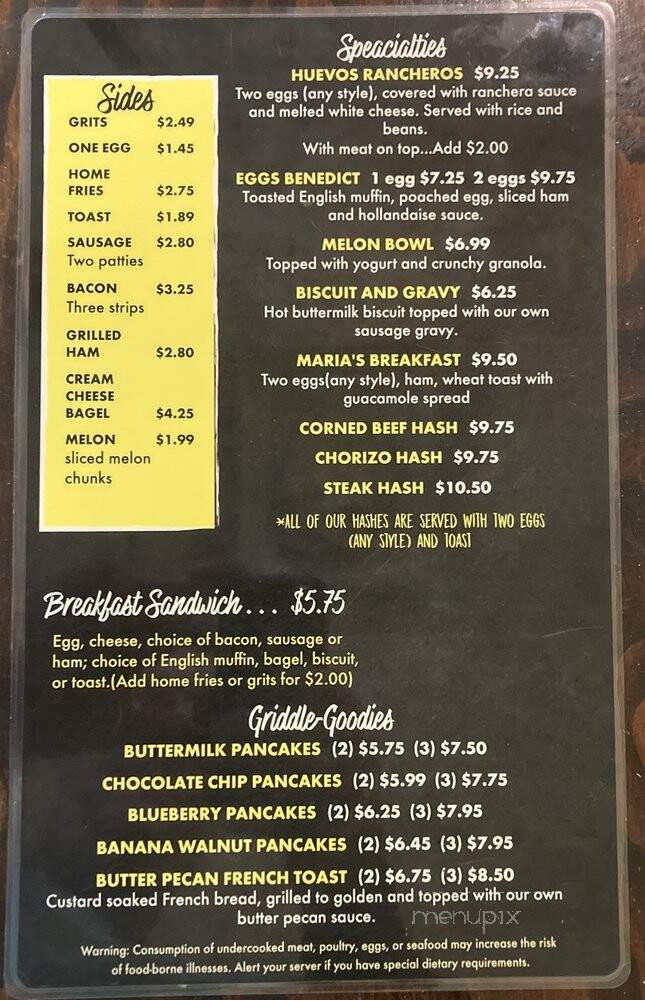 Sides
GRITS $2.49
ONE EGG $1.45
HOME
FRIES $2.75
TOAST $1.89
SAUSAGE $2.80
Two patties
BACON $3.25
Three strips
GRILLED
HAM $2.80
CREAM
CHEESE
BAGEL $4.25
MELON $1.99
sliced melon
chunks
Speacialties
HUEVOS RANCHEROS $9.25
Two eggs (any style), covered with ranchera sauce
and melted white cheese. Served with rice and
beans.
With meat on top...Add $2.00
EGGS BENEDICT 1 egg $7.25 2 eggs $9.75
Toasted English muffin, poached egg, sliced ham
and hollandaise sauce.
MELON BOWL $6.99
Topped with yogurt and crunchy granola.
BISCUIT AND GRAVY $6.25
Hot buttermilk biscuit topped with our own
sausage gravy.
MARIA'S BREAKFAST $9.50
Two eggs(any style), ham, wheat toast with
guacamole spread
CORNED BEEF HASH $9.75
CHORIZO HASH $9.75
STEAK HASH $10.50
*ALL OF OUR HASHES ARE SERVED WITH TWO EGGS
(ANY STYLE) AND TOAST
Breakfast Sandwich... $5.75
Egg, cheese, choice of bacon, sausage or
ham; choice of English muffin, bagel, biscuit,
or toast.(Add home fries or grits for $2.00)
Griddle-Goodies
BUTTERMILK PANCAKES (2) $5.75 (3) $7.50
CHOCOLATE CHIP PANCAKES (2) $5.99 (3) $7.75
BLUEBERRY PANCAKES (2) $6.25 (3) $7.95
BANANA WALNUT PANCAKES (2) $6.45 (3) $7.95
BUTTER PECAN FRENCH TOAST (2) $6.75 (3) $8.50
Custard soaked French bread, grilled to golden and topped with our own
butter pecan sauce.
menupix
Warning: Consumption of undercooked meat, poultry, eggs, or seafood may increase the risk
of food-borne illnesses. Alert your server if you have special dietary requirements.